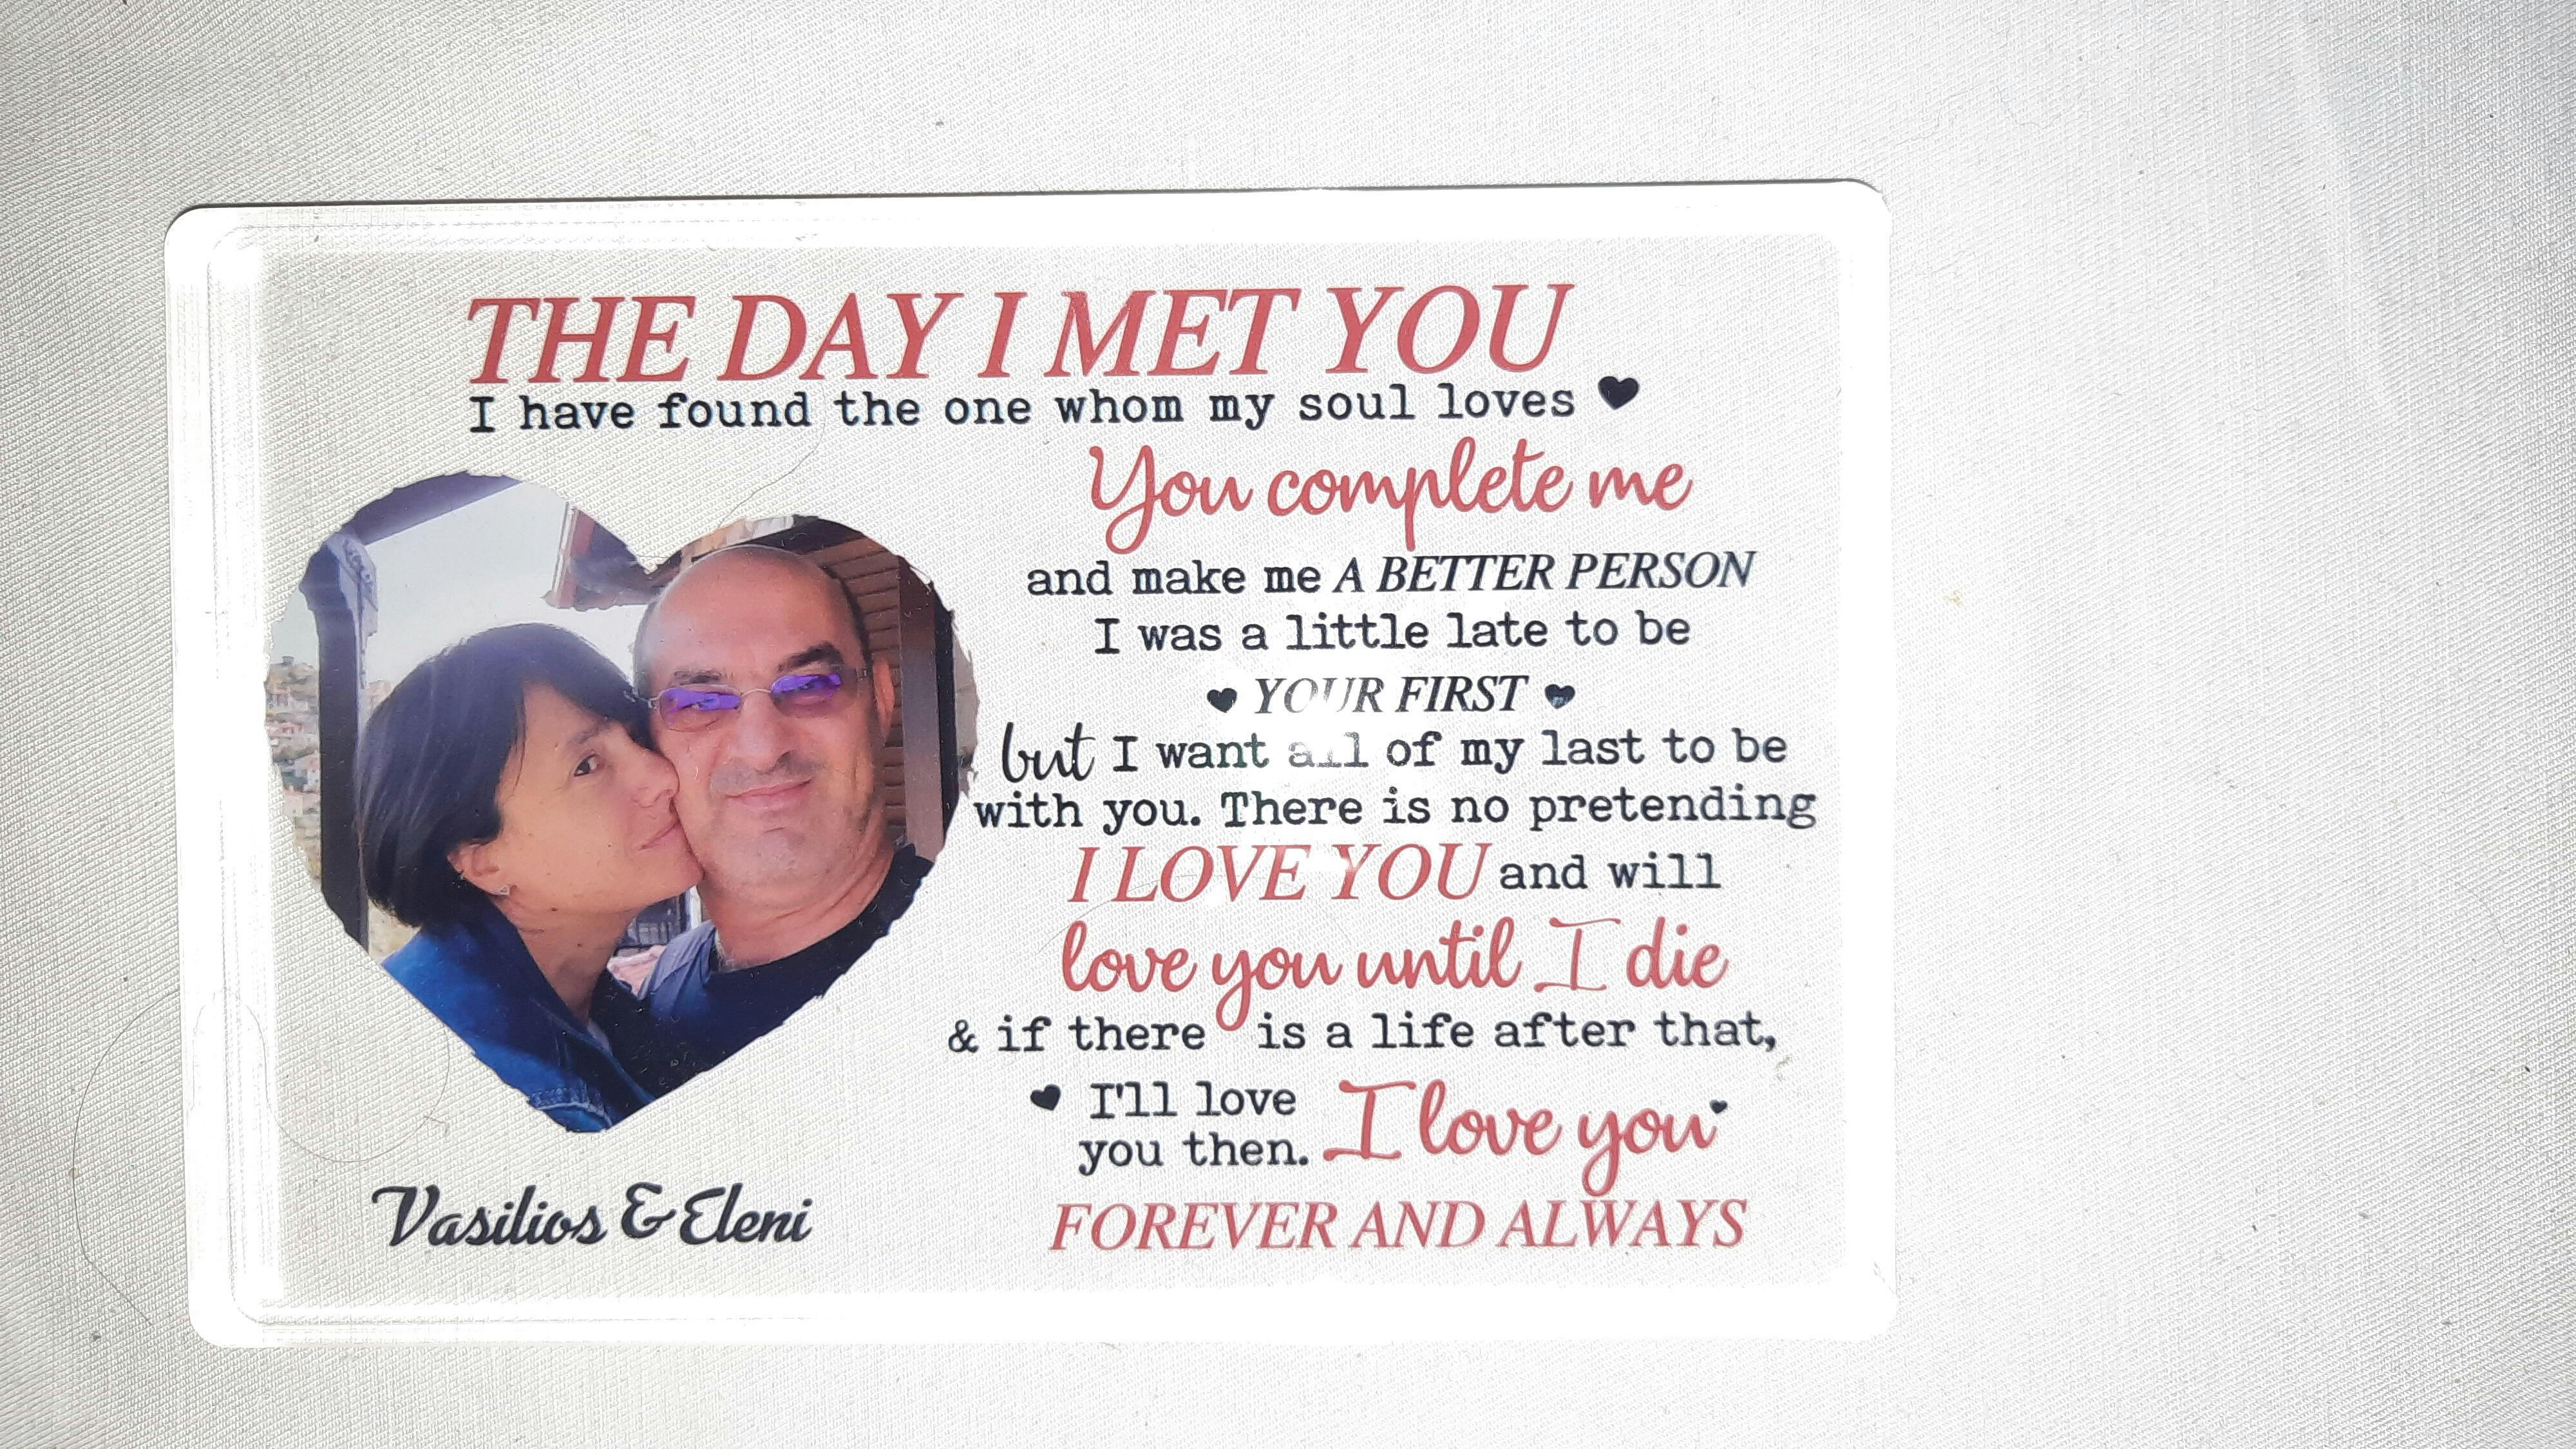 THE DAY I MET YOU
I have found the one whom my soul loves
You complete me
and make me A BETTER PERSON
I was a little late to be
YOUR FIRST
but I want all of my last to be
with you. There is no pretending
I LOVE YOU and will
love you until I die
& if there is a life after that,
I'll love
you then. I love you
FOREVER AND ALWAYS
Vasilios & Eleni